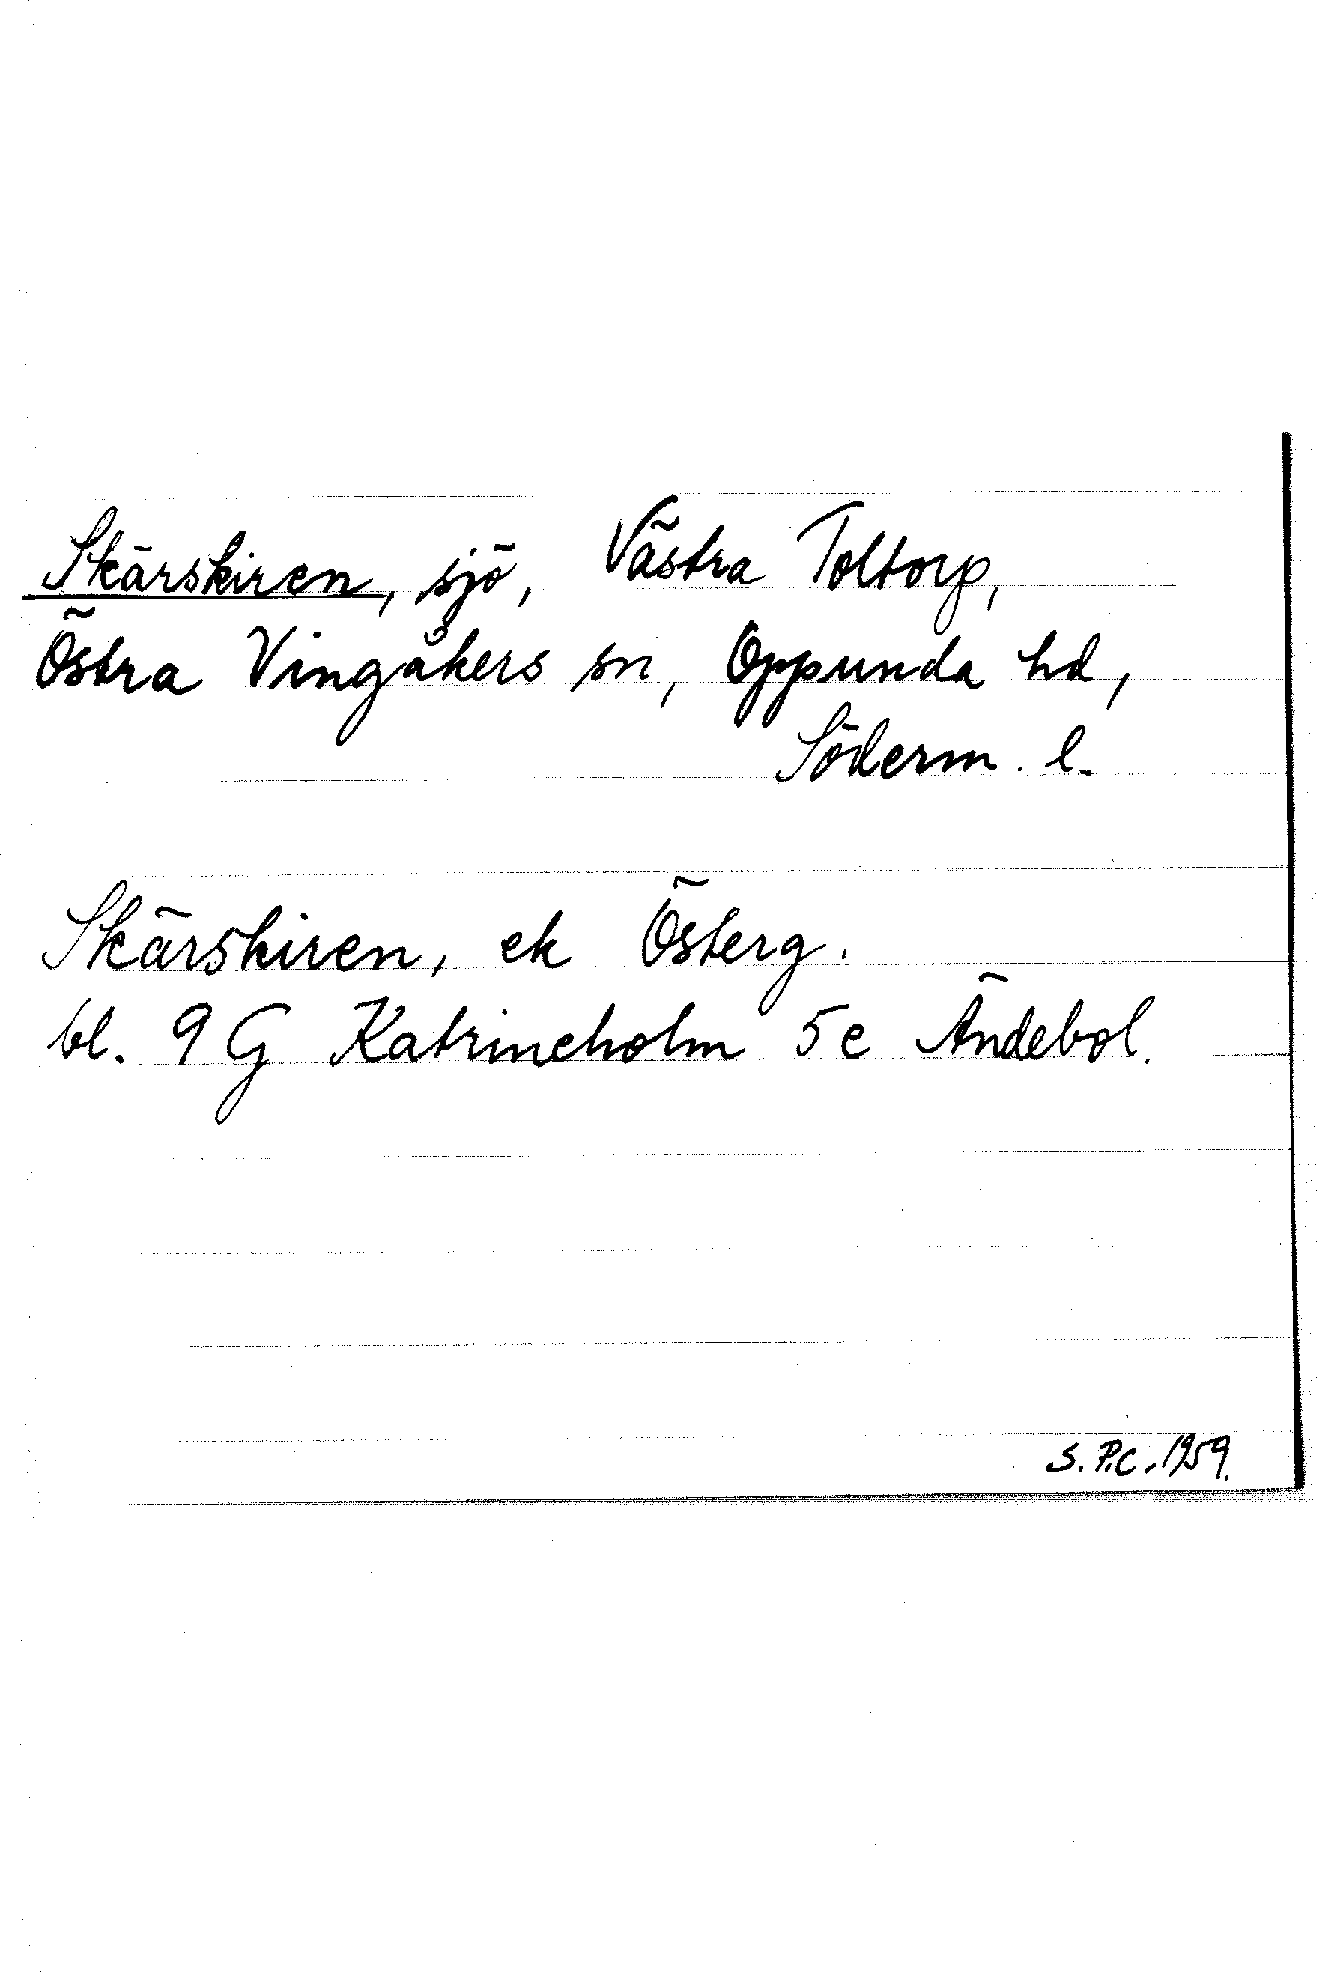 Skärskiren, sjö, Västra Toltorp,
Östra Vingåkers sn, Oppunda hd,
Söderm. l.
Skärskiren, ek Österg.
bl. 9 G Katrineholm 5 c Ändebol.
S.P.C. 1959.